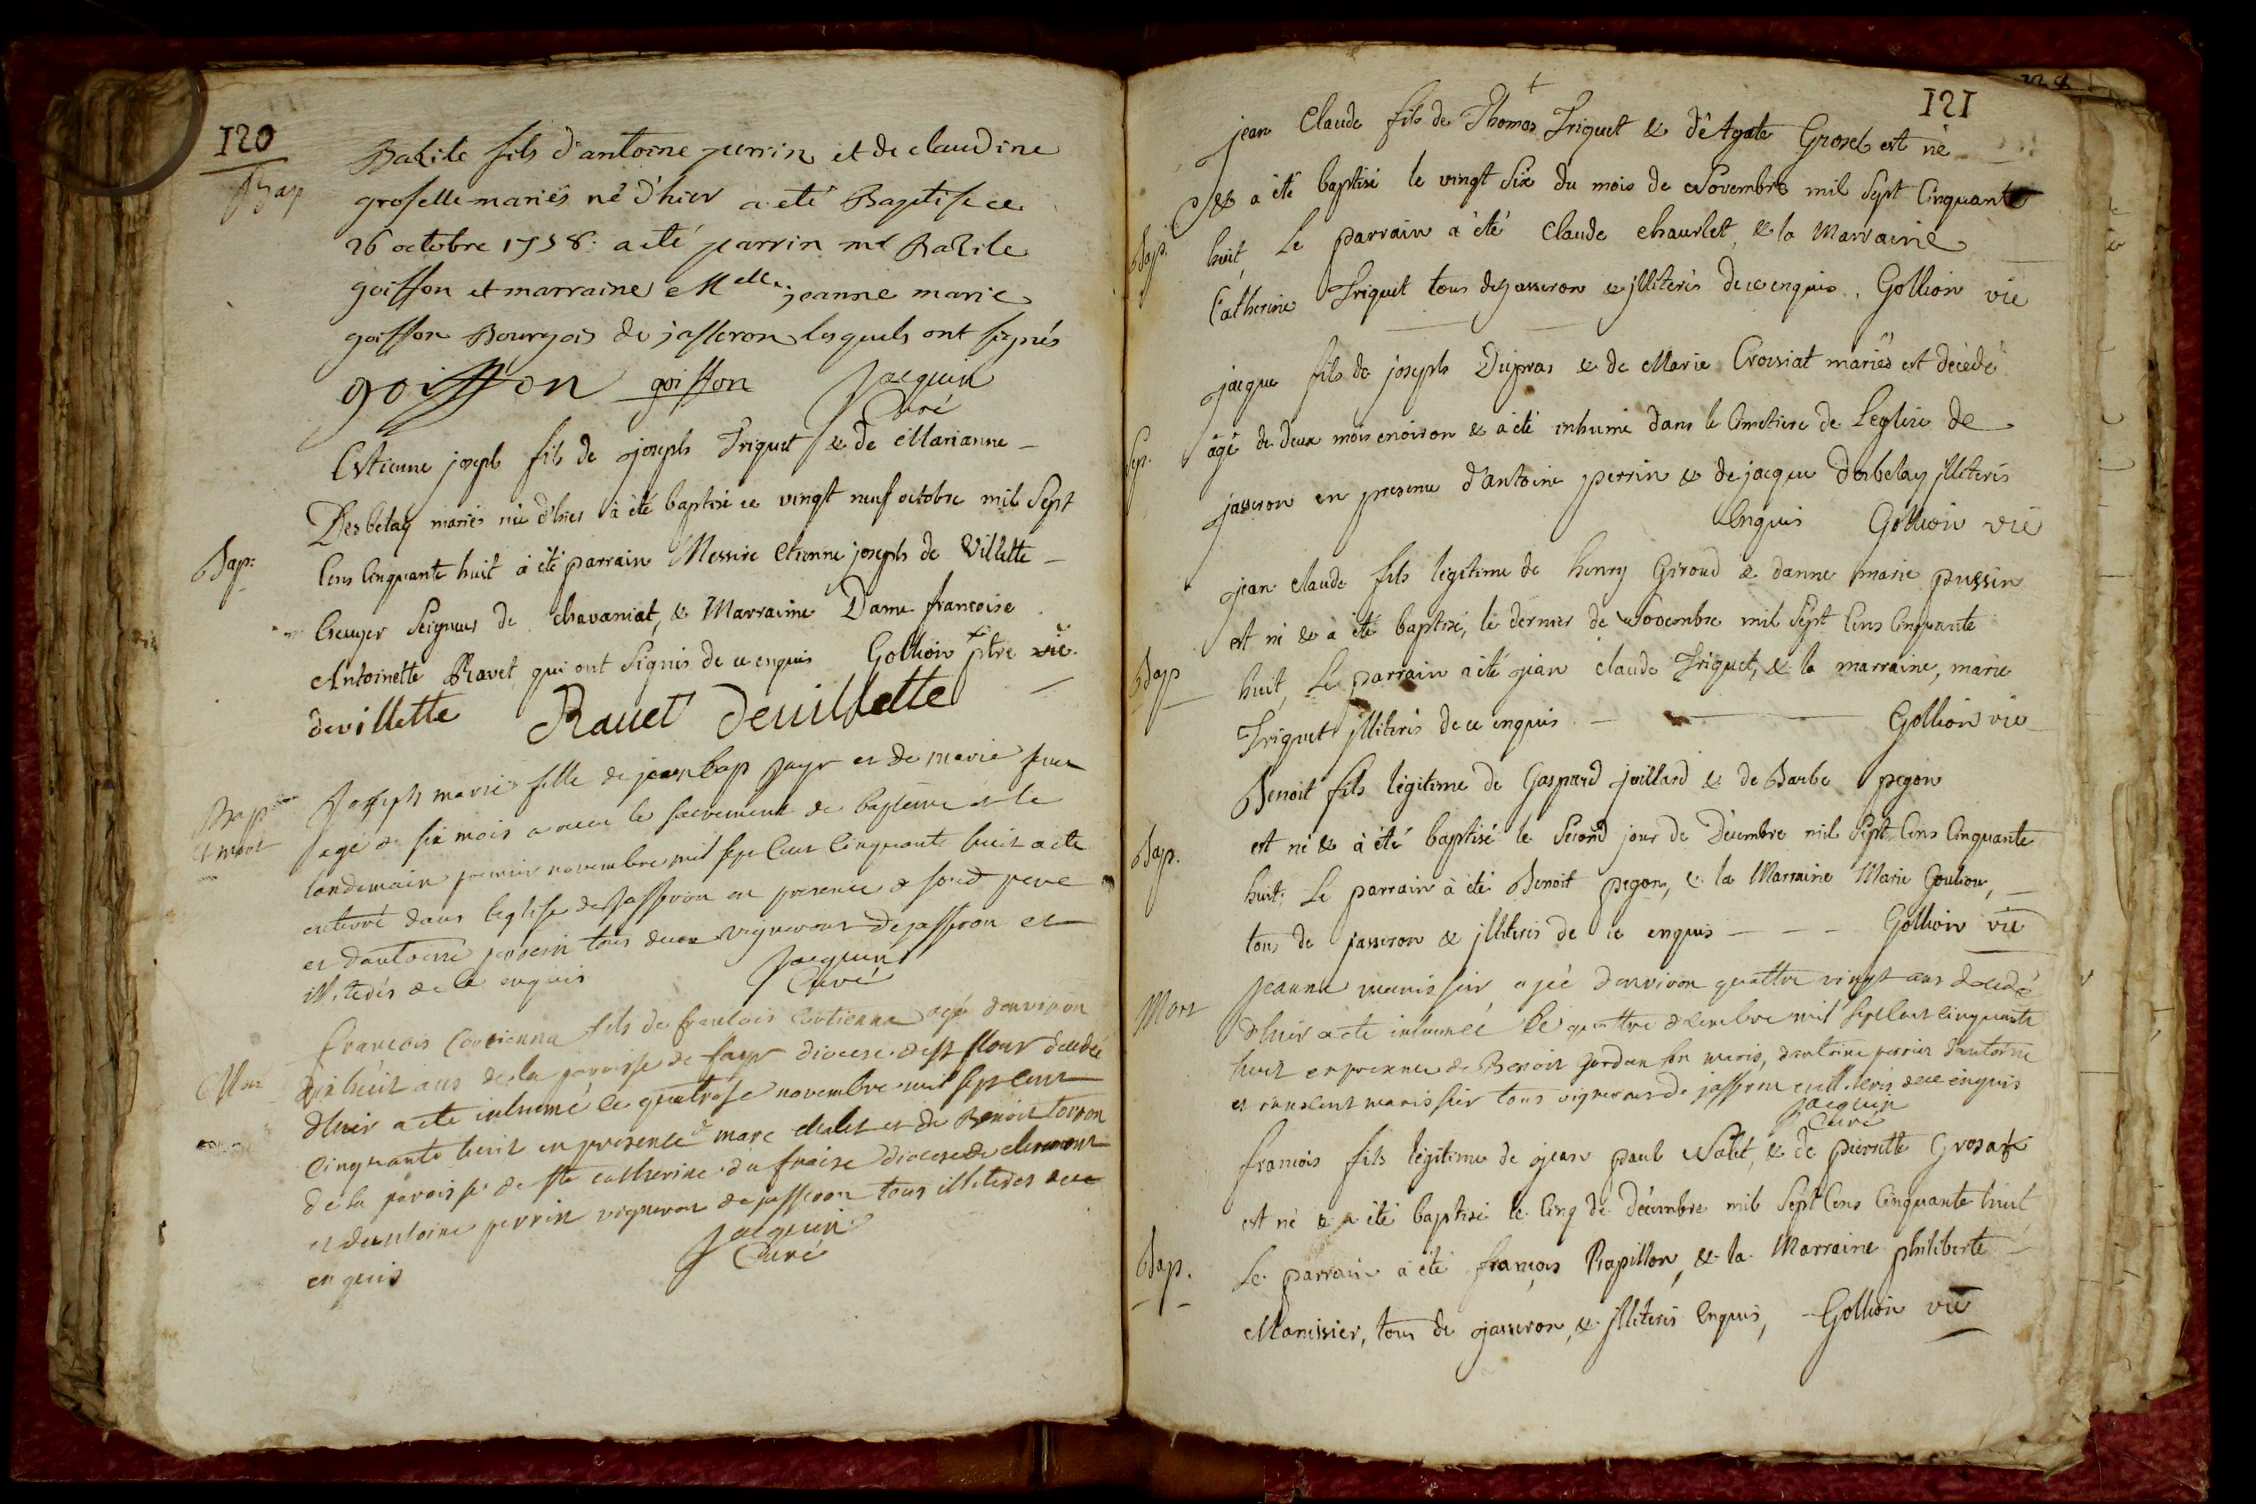 120
Bap
Bazile fils d'antoine perrin et de claudine
groselle mariés né d'hier a eté Baptisé ce
26 octobre 1758. a eté parrin mr Bazile
goiffon et marraine Melle jeanne marie
goiffon Bourgois de jasseron lesquels ont signés
goiffon goiffon Jacquin
Curé
Bap:
Estienne joseph fils de joseph Triquet & de Marianne
Desbelay mariés née d'hier à été baptisé ce vingt neuf octobre mil Sept
Cens Cinquante huit à été parrain Messire Etienne joseph de Villette
Ecuyer Seigneur de chavaniat, & Marraine Dame francoise
Antoinette Ravet qui ont signés de ce enquis Gollion ptre vic.
devillette Ravet Devillette
Bap
et mort
Joseph marie fille de jean bap et de marie
agé de six mois a recu le sacrement de baptême et le
landemain premier novembre mil sept Cent Cinquante huit a eté
enterré dans leglise de Jasseron en presence de son d pere
et dantoine perrein tous deux vignerons de jasseron et
illiterés de ce enquis Jacquin
Curé
Mor
francois Coutienne fils de francois Coutienne agé denviron
dix huit ans de la paroisse de diocese de st flour decedé
dhier a eté inhumé le quatrose novembre mil sept cent
Cinquante huit en presence de marc chalet et de Benoit
de la paroisse de ste catherine du fraise diocese de clermont
et dantoine perrin vigneron de jasseron tous illiterés de ce
enquis Jacquin
Curé
121
jean Claude fils de Thomas Triquet & d'Agate Grosel est né
& à été baptisé le vingt Six du mois de Novembre mil Sept Cinquante
Bap.
huit, Le parrain à été Claude chaurlet, & la Marraine
Catherine Triquet tous de jasseron & jlliterés de ce enquis. Gollion vic
jacque fils de joseph Dupras & de Marie Croisiat mariés est décedé
Sep.
âgé de deux mois environ & a été inhumé dans le Cimetiere de Leglise de
jasseron en presence d'antoine perrin & de jacque Desbelay jlliterés
Enquis Gollion vic
jean claude fils légitime de henry Giroud & danne marie pussin
est né & à été baptisé, le dernier de Novembre mil Sept Cens Cinquante
Bap
huit, Le parrain a été jean claude Triquet, & la marraine, marie
Triquet jlliterés de ce enquis Gollion vic
Benoit fils légitime de Gaspard joillard & de Barbe pegon
est né & à été baptisé le Second jour de Décembre mil Sept Cens Cinquante
Bap.
huit: Le parrain à été Benoit pegon, & la Marraine Marie Goubou,
tous de jasseron & jlliterés de ce enquis - - - Gollion vic
Mort
Jeanne manissier agée denviron quattre vingt ans decedé
dhier a eté inhumée le quattre decembre mil sept Cent cinquante
huit en presence de Benoit Jordan son maris, dantoine perrin dantoine
et vincent manissier tous vignerons de jasseron illiterés de ce enquis
Jacquin
Curé
francois fils légitime de jean paul Natet, & de pierrette Grosat
est né & à été baptisé le Cinq de Décembre mil Sept Cens Cinquante huit
Bap.
Le parrain à été françois Papillon, & la Marraine philiberte
Manissier, tous de jasseron, & jlliterés Enquis, Gollion vic